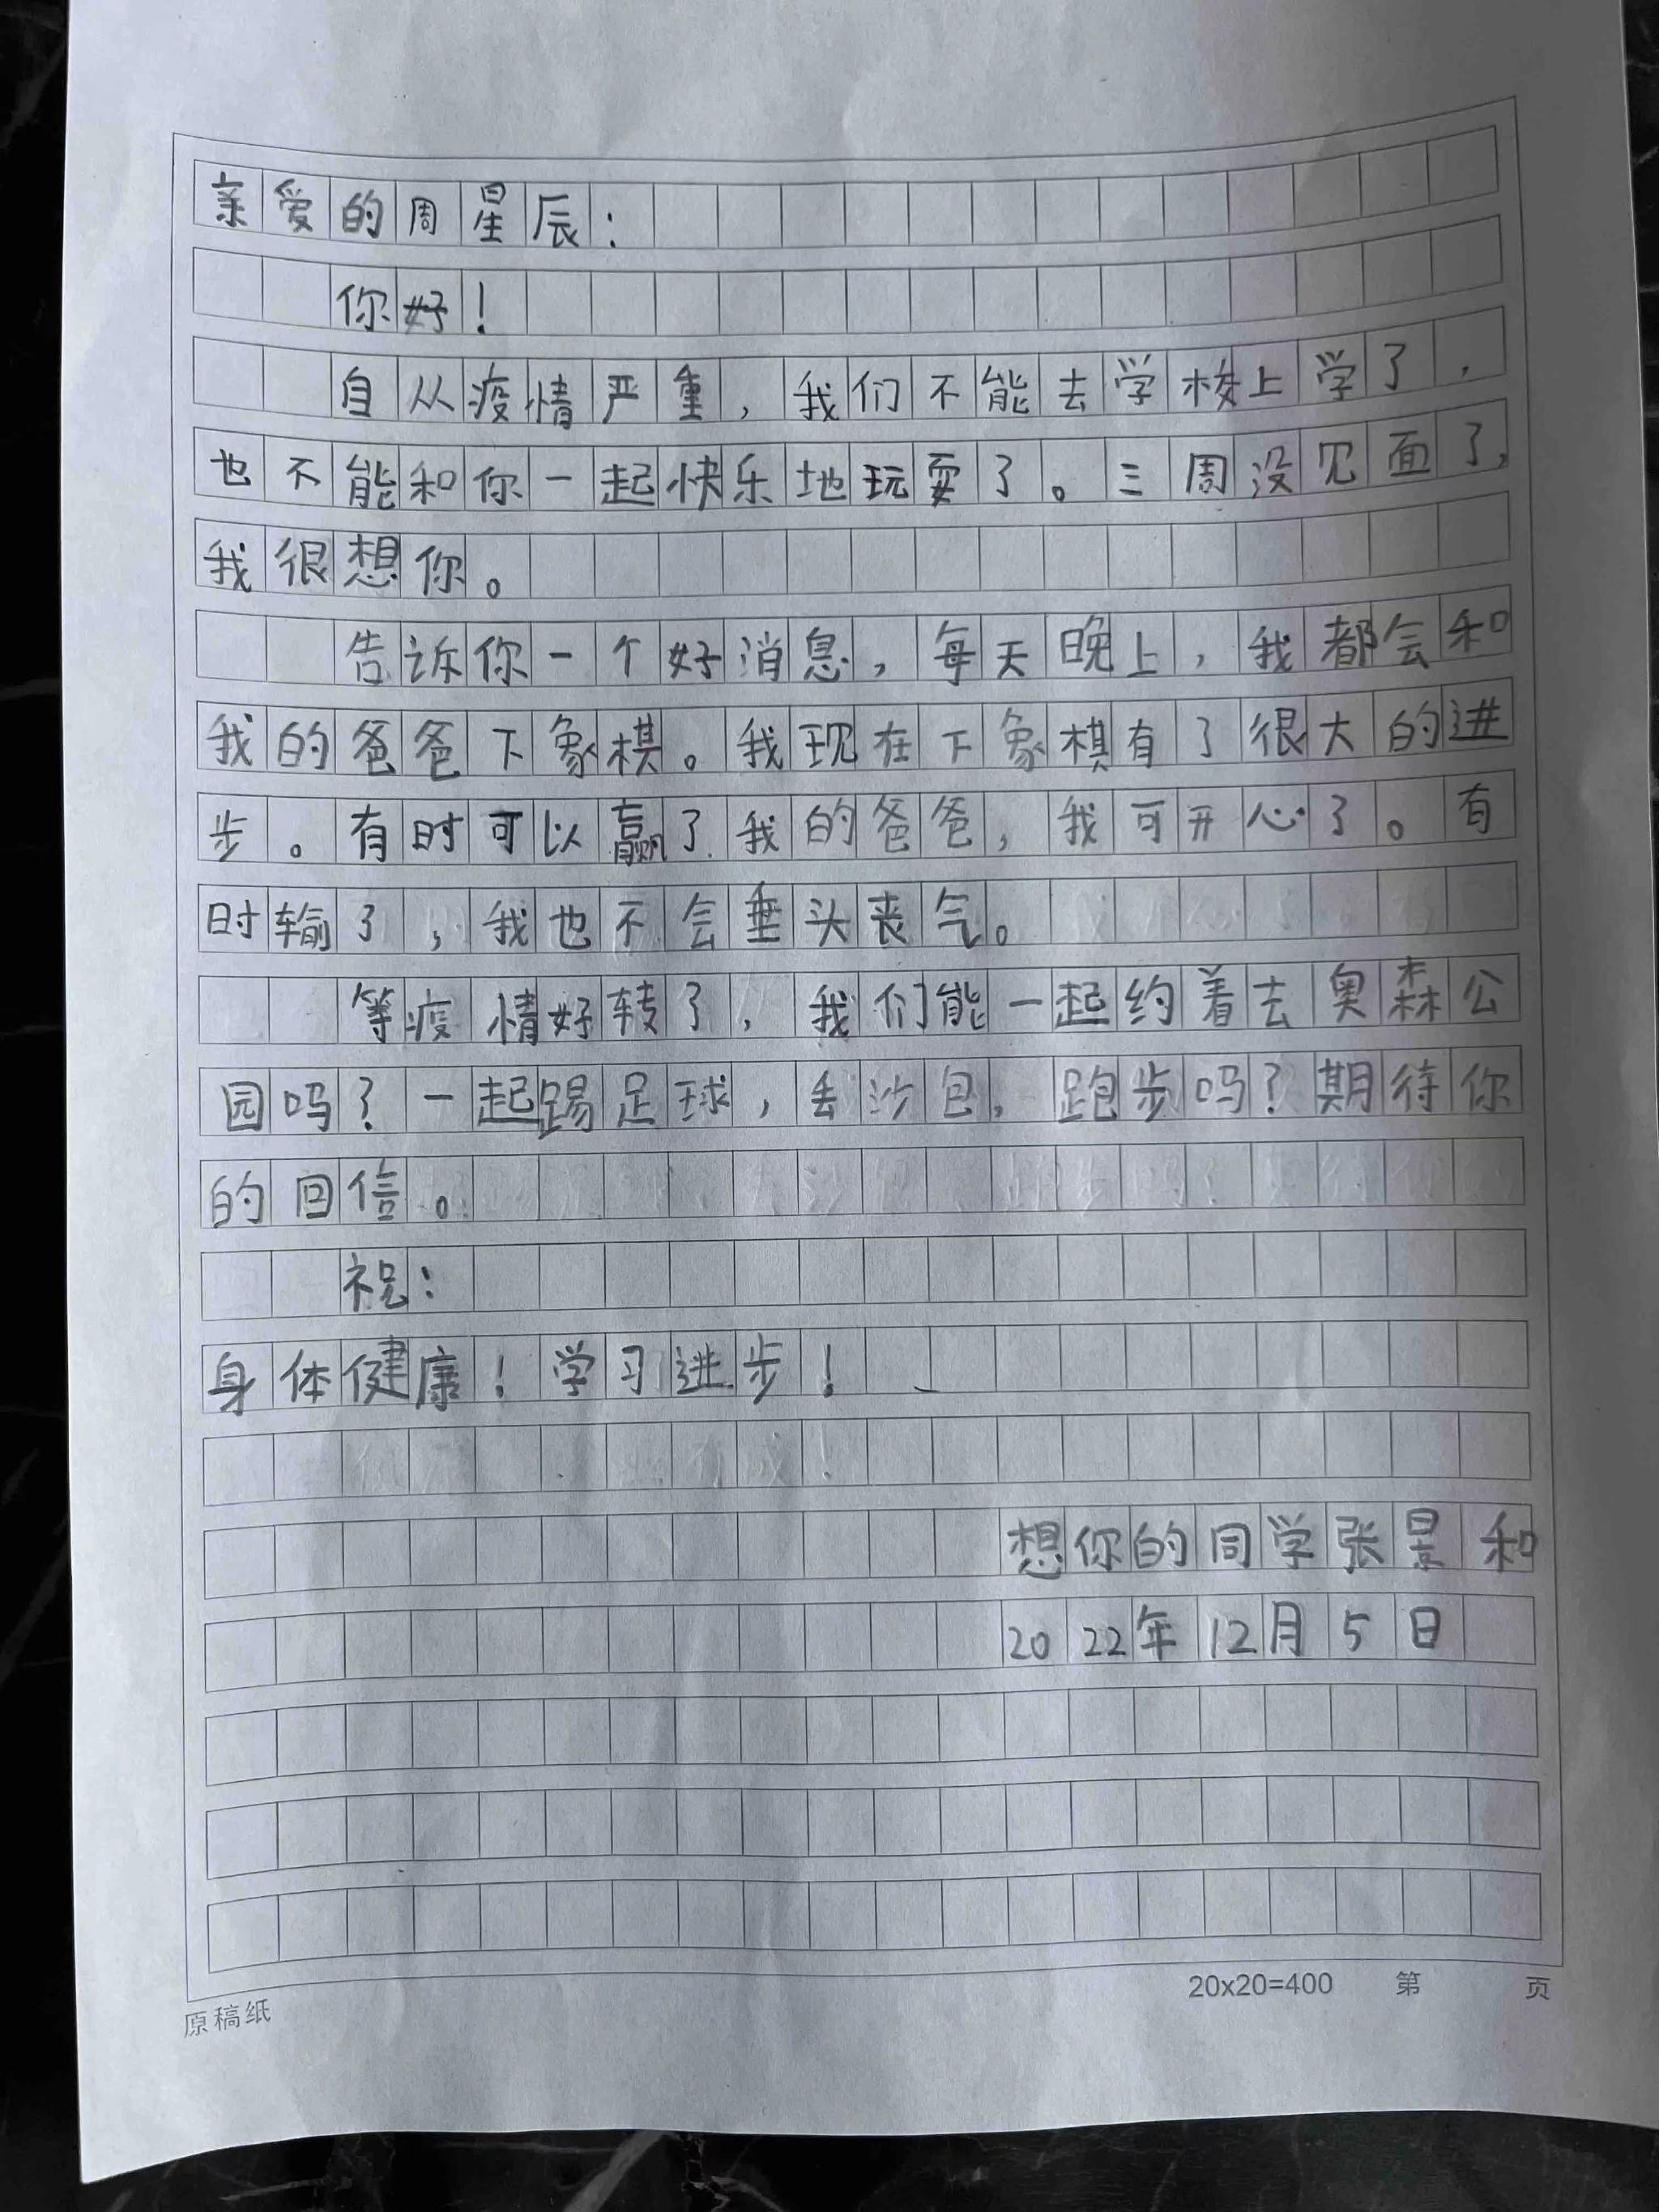 亲爱的周星辰：
你好！
自从疫情严重，我们不能去学校上学了，
也不能和你一起快乐地玩耍了。三周没见面了，
我很想你。
告诉你一个好消息，每天晚上，我都会和
我的爸爸下象棋。我现在下象棋有了很大的进
步。有时可以赢了我的爸爸，我可开心了。有
时输了，我也不会垂头丧气。
等疫情好转了，我们能一起约着去奥森公
园吗？一起踢足球，丢沙包，跑步吗？期待你
的回信。
祝：
身体健康！学习进步！
想你的同学张景和
2022年12月5日
原稿纸 20x20=400 第 页